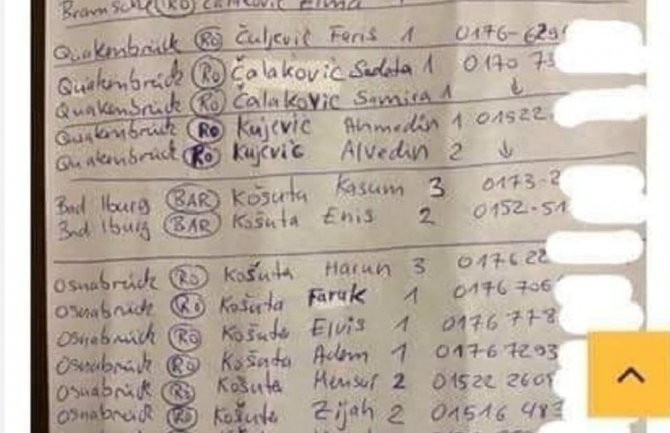 Bramsche (Ro) Čalaković Elma 1
Quakenbrück (Ro) Čuljević Faris 1 0176-629
Quakenbrück (Ro) Čalaković Sadeta 1 0170 73
Quakenbrück (Ro) Čalaković Samira 1 ↓
Quakenbrück (Ro) Kujević Ahmedin 1 01522
Quakenbrück (Ro) Kujević Alvedin 2 ↓
Bad Iburg (BAR) Košuta Kasum 3 0173-2
Bad Iburg (BAR) Košuta Enis 2 0152-51
Osnabrück (Ro) Košuta Harun 3 0176 22
Osnabrück (Ro) Košuta Faruk 1 0176 706
Osnabrück (Ro) Košuta Elvis 1 0176 778
Osnabrück (Ro) Košuta Adem 1 0176 7293
Osnabrück (Ro) Košuta Mensur 2 01522 2601
Osnabrück (Ro) Košuta Zijah 2 01516 483